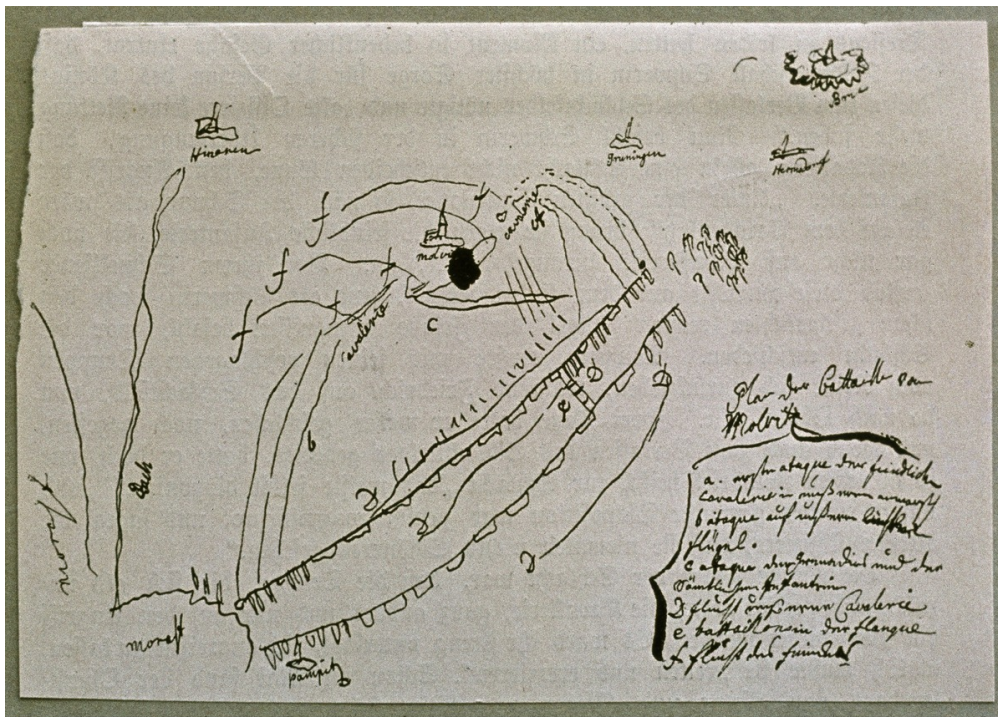 gruningen
Hermsdorf
cavalerie
A
f
f
f
C
cavalerie
b
D
D
D
D
e
Bach
morast
morast
pampitz
Plan der Battaille von
Molvitz
a. erste ataque der feindlichen
Cavalerie in
b ataque auf unseren
flügel.
C ataque der Grenadirs und der
sämtlichen Infanterie
D flucht unserer Cavalerie
e battaillonen in der flanque
f. flucht des feindes